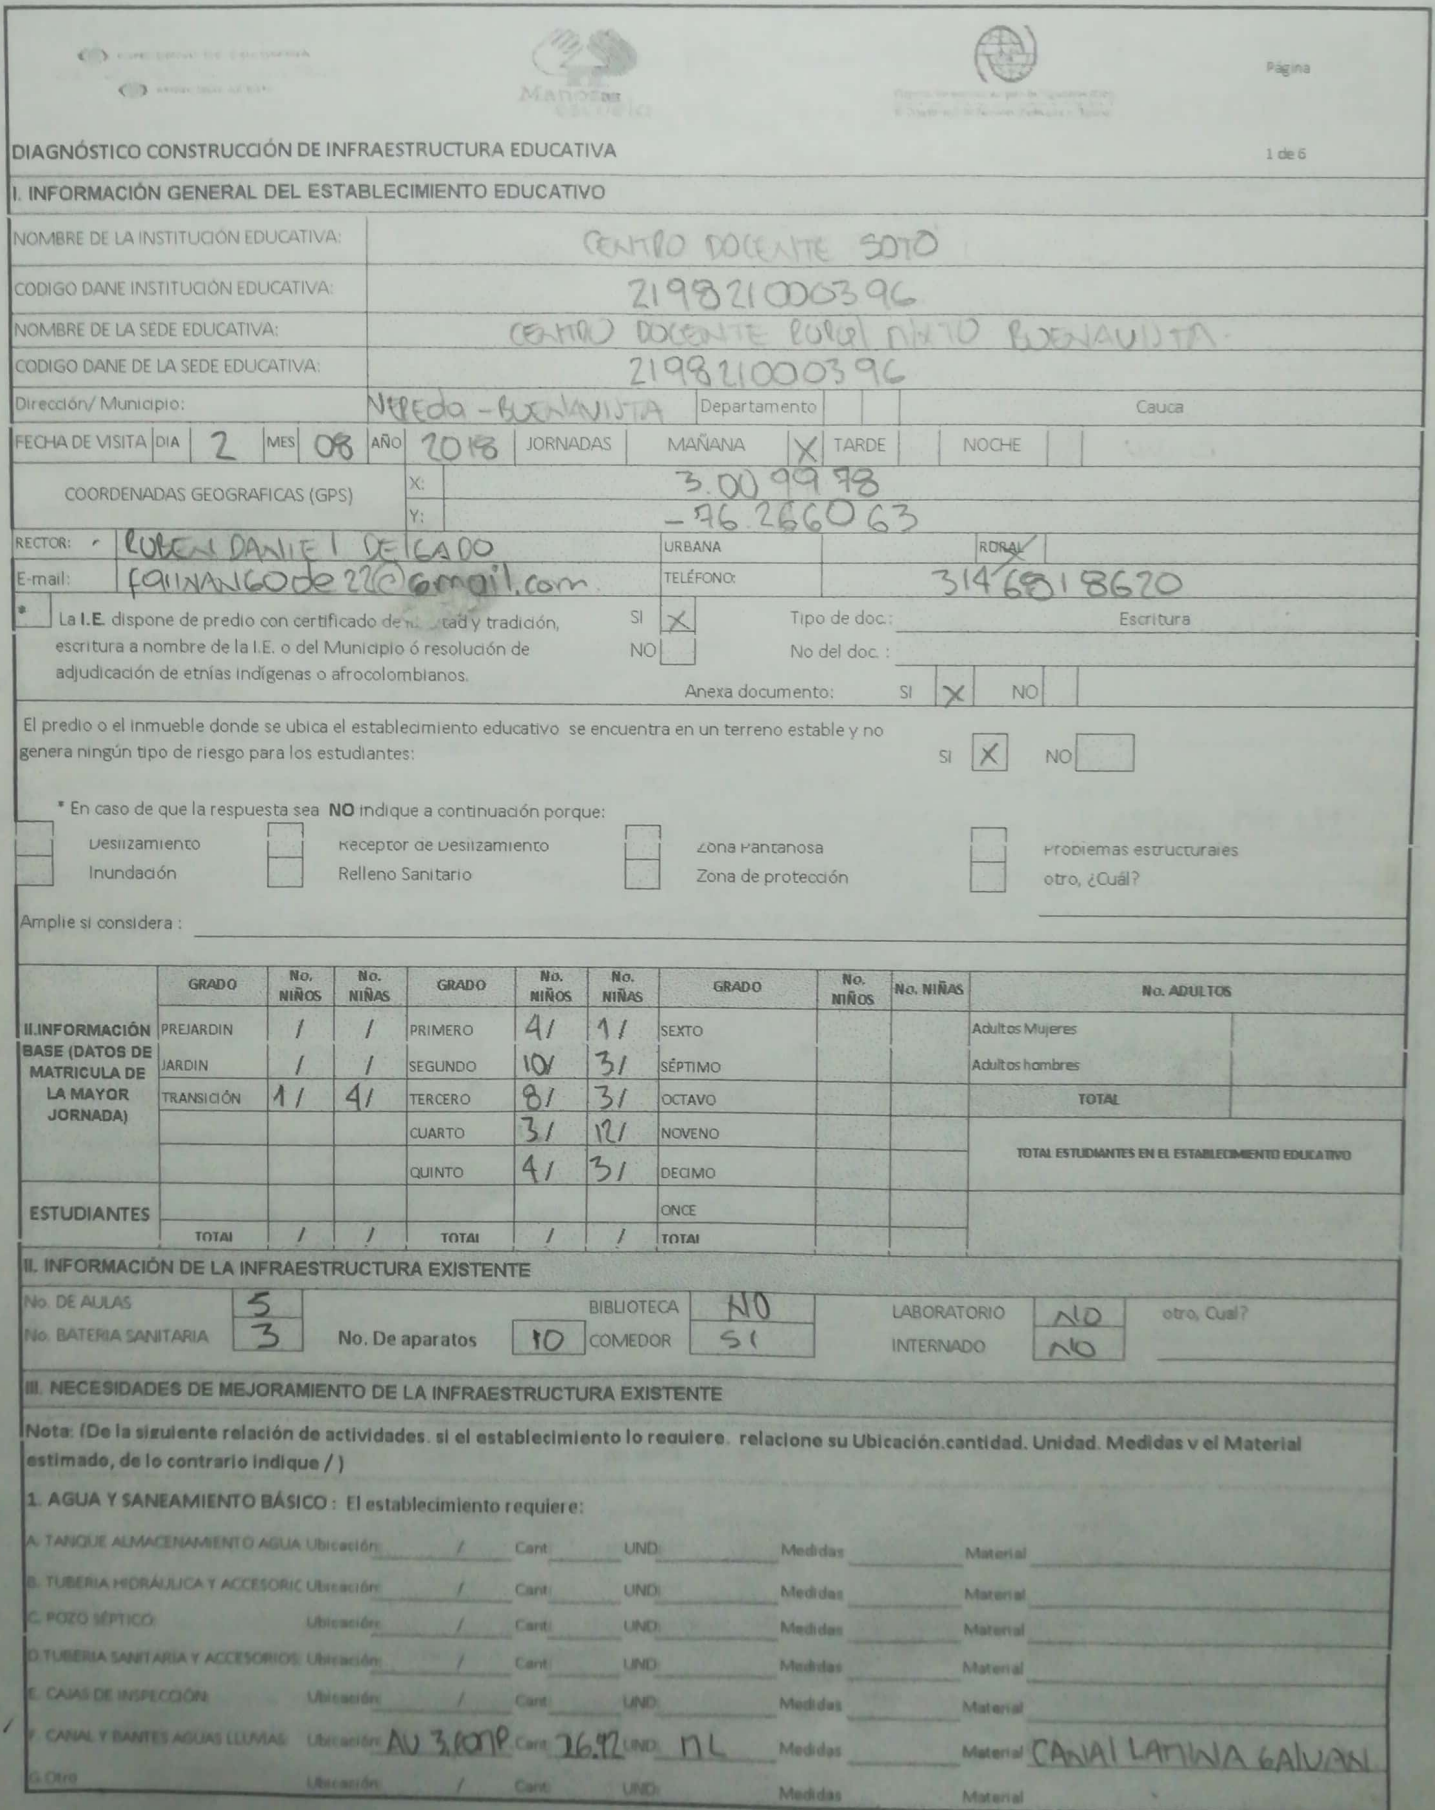 Manos a la
escuela
Página
DIAGNÓSTICO CONSTRUCCIÓN DE INFRAESTRUCTURA EDUCATIVA 1 de 6
I. INFORMACIÓN GENERAL DEL ESTABLECIMIENTO EDUCATIVO
NOMBRE DE LA INSTITUCIÓN EDUCATIVA: CENTRO DOCENTE SOTO
CODIGO DANE INSTITUCIÓN EDUCATIVA: 219821000396
NOMBRE DE LA SEDE EDUCATIVA: CENTRO DOCENTE RURAl MIXTO BUENAVISTA.
CODIGO DANE DE LA SEDE EDUCATIVA: 219821000396
Dirección/ Municipio: VEREda - BUENAVISTA Departamento Cauca
FECHA DE VISITA DIA 2 MES 08 AÑO 2018 JORNADAS MAÑANA X TARDE NOCHE
COORDENADAS GEOGRAFICAS (GPS) X: 3.009978
Y: -76.266063
RECTOR: RUBEN DANIEl DElGADO URBANA RURAL
E-mail: @Gmail.com TELÉFONO: 3146818620
* La I.E. dispone de predio con certificado de y tradición, SI X Tipo de doc.: Escritura
escritura a nombre de la I.E. o del Municipio ó resolución de NO No del doc. :
adjudicación de etnías indígenas o afrocolombianos.
Anexa documento: SI X NO
El predio o el inmueble donde se ubica el establecimiento educativo se encuentra en un terreno estable y no
genera ningún tipo de riesgo para los estudiantes: SI X NO
* En caso de que la respuesta sea NO indique a continuación porque:
Deslizamiento Receptor de Deslizamiento Zona Pantanosa Problemas estructurales
Inundación Relleno Sanitario Zona de protección otro, ¿Cuál?
Amplie si considera :
GRADO No. NIÑOS No. NIÑAS GRADO No. NIÑOS No. NIÑAS GRADO No. NIÑOS No. NIÑAS No. ADULTOS
II.INFORMACIÓN BASE (DATOS DE MATRICULA DE LA MAYOR JORNADA)
PREJARDIN / / PRIMERO 4/ 1/ SEXTO Adultos Mujeres
JARDIN / / SEGUNDO 10/ 3/ SÉPTIMO Adultos hombres
TRANSICIÓN 1/ 4/ TERCERO 8/ 3/ OCTAVO TOTAL
CUARTO 3/ 12/ NOVENO TOTAL ESTUDIANTES EN EL ESTABLECIMIENTO EDUCATIVO
QUINTO 4/ 3/ DECIMO
ESTUDIANTES ONCE
TOTAL / / TOTAL / / TOTAL
II. INFORMACIÓN DE LA INFRAESTRUCTURA EXISTENTE
No. DE AULAS 5 BIBLIOTECA NO LABORATORIO NO otro, Cual?
No. BATERIA SANITARIA 3 No. De aparatos 10 COMEDOR SI INTERNADO NO
III. NECESIDADES DE MEJORAMIENTO DE LA INFRAESTRUCTURA EXISTENTE
Nota: (De la siguiente relación de actividades. si el establecimiento lo requiere. relacione su Ubicación.cantidad. Unidad. Medidas y el Material
estimado, de lo contrario indique / )
1. AGUA Y SANEAMIENTO BÁSICO : El establecimiento requiere:
A. TANQUE ALMACENAMIENTO AGUA Ubicación: / Cant: UND: Medidas Material
B. TUBERIA HIDRÁULICA Y ACCESORIC Ubicación: / Cant: UND: Medidas Material
C. POZO SÉPTICO: Ubicación: / Cant: UND: Medidas Material
D.TUBERIA SANITARIA Y ACCESORIOS: Ubicación: / Cant: UND: Medidas Material
E. CAJAS DE INSPECCIÓN: Ubicación: / Cant: UND: Medidas Material
F. CANAL Y BANTES AGUAS LLUVIAS: Ubicación: Cant: 26.92 UND: ML Medidas Material CANAl LAMINA GAlVAN
G.Otro Ubicación: / Cant: UND: Medidas Material